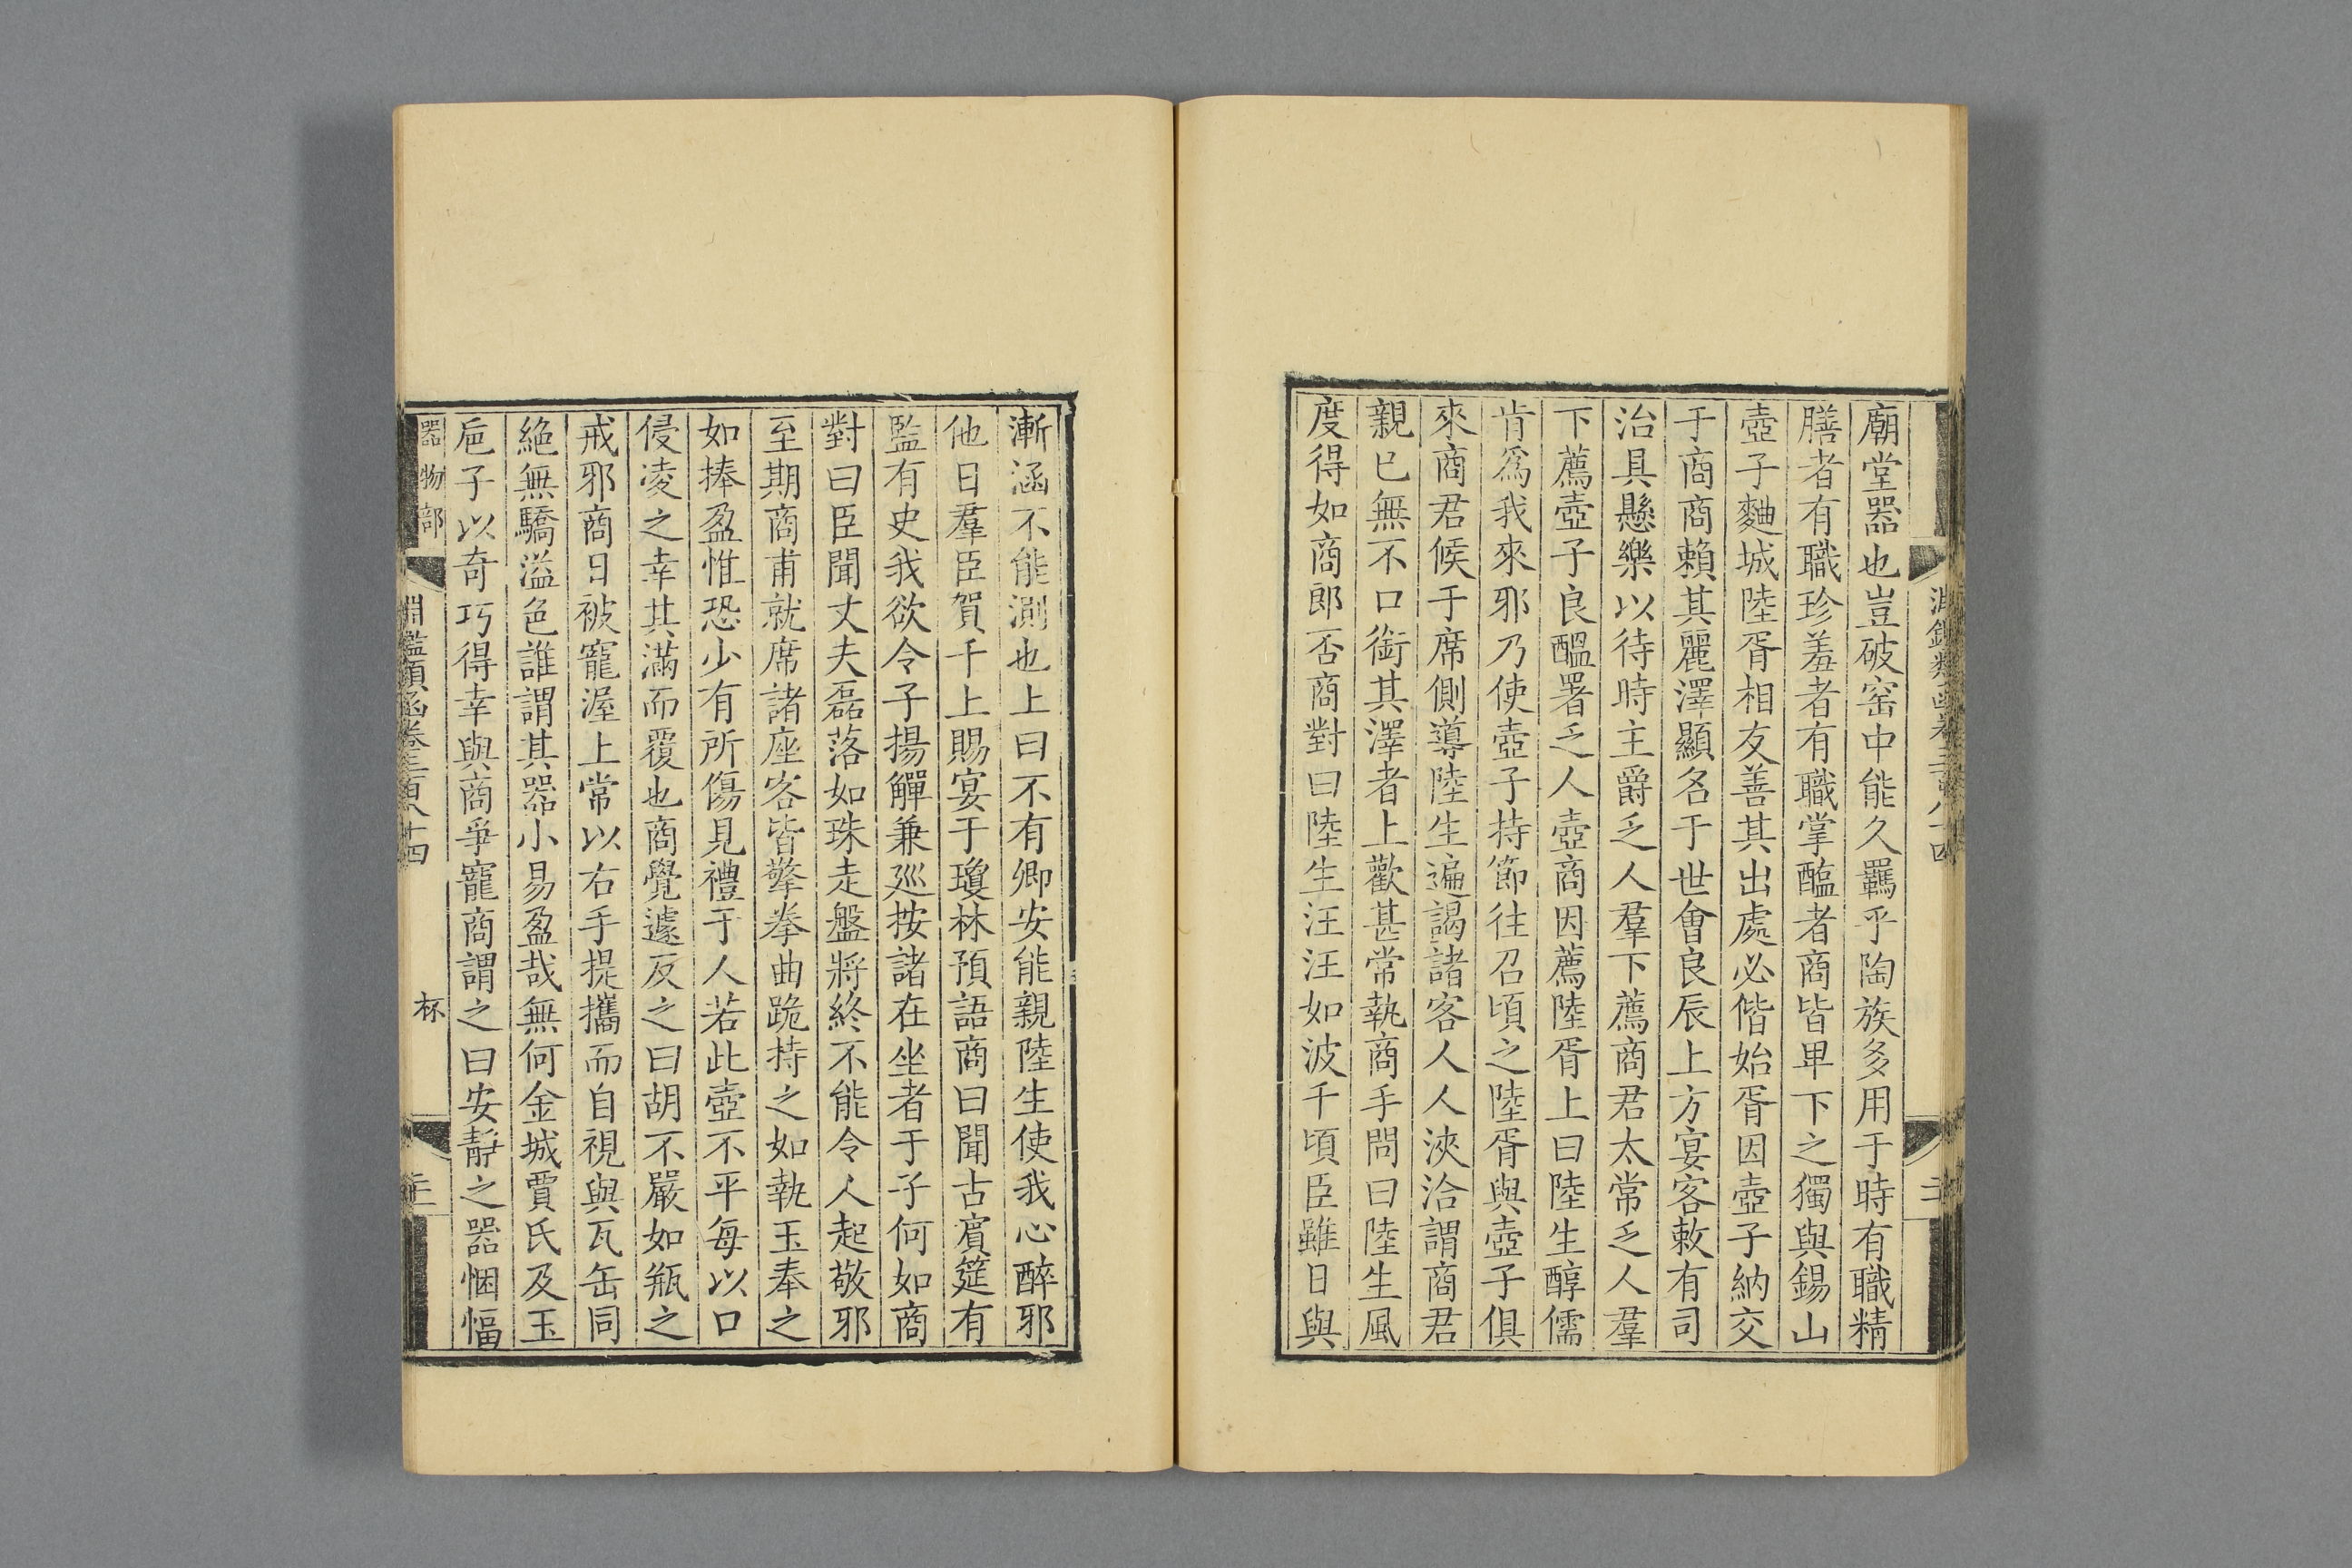 廟堂器也豈破窑中能久羈乎陶族多用于時有職精
膳者有職珍羞者有職掌醢者商皆卑下之獨與錫山
壺子麯城陸胥相友善其出處必偕始胥因壺子納交
于商商賴其麗澤顯名于世會良辰上方宴客敕有司
治具懸樂以待時主爵乏人羣下薦商君太常乏人羣
下薦壺子良醞署乏人壺商因薦陸胥上曰陸生醇儒
肯爲我來邪乃使壺子持節往召頃之陸胥與壺子俱
來商君候于席側導陸生遍謁諸客人人浹洽謂商君
親已無不口銜其澤者上歡甚常執商手問曰陸生風
度得如商郎否商對曰陸生汪汪如波千頃臣雖日與
漸涵不能測也上曰不有卿安能親陸生使我心醉邪
他日羣臣賀千上賜宴于瓊林預語商曰聞古賔筵有
監有史我欲令子揚觶兼巡按諸在坐者于子何如商
對曰臣聞丈夫磊落如珠走盤將終不能令人起敬邪
至期商甫就席諸座客皆擎拳曲跪持之如執玉奉之
如捧盈惟恐少有所傷見禮于人若此壺不平每以口
侵凌之幸其滿而覆也商覺遽反之曰胡不嚴如瓶之
戒邪商日被寵渥上常以右手提攜而自視與瓦缶同
絶無驕溢色誰謂其器小易盈哉無何金城賈氏及玉
巵子以奇巧得幸與商爭寵商謂之曰安靜之器悃愊
器物部 淵鑑類函卷三百八十四 杯